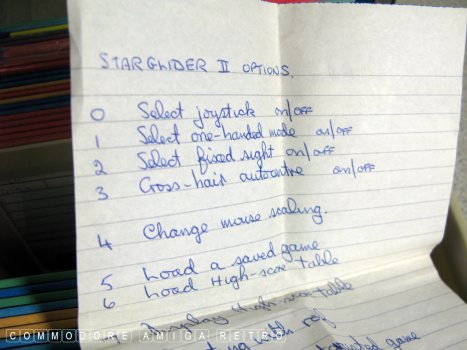 STARGLIDER II OPTIONS.
0 Select joystick on/OFF
1 Select one-handed mode on/OFF
2 Select fixed sight on/OFF
3 Cross-hair autocentre on/OFF
4 Change mouse scaling.
5 Load a saved game
6 Load High-score table
Display high-score table
game
COMMODORE AMIGA RETRO